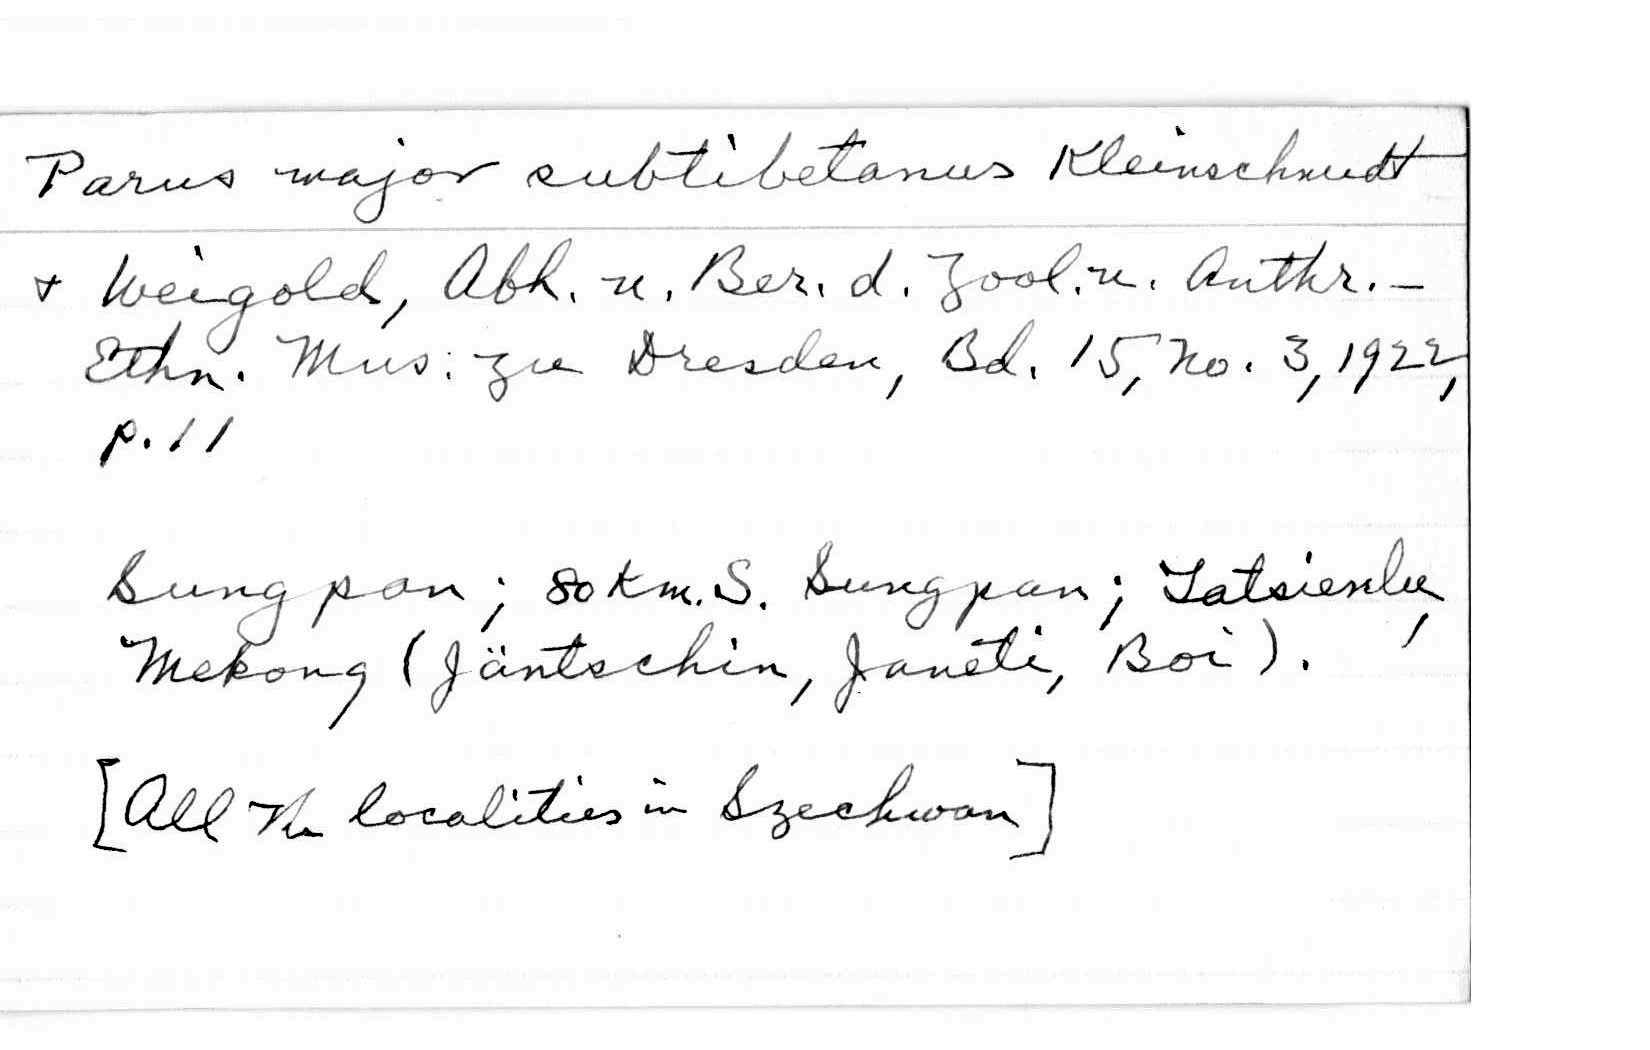 Parus major subtibetanus Kleinschmidt
+ Weigold, Abh. u. Ber. d. Zool. u. Anthr.-
Ethn. Mus. zu Dresden, Bd. 15, No. 3, 1922,
p. 11
Sungpan; 80 km. S. Sungpan; Tatsienlu,
Mekong (Jäntschin, Janeti, Boi).
[All the localities in Szechwan]